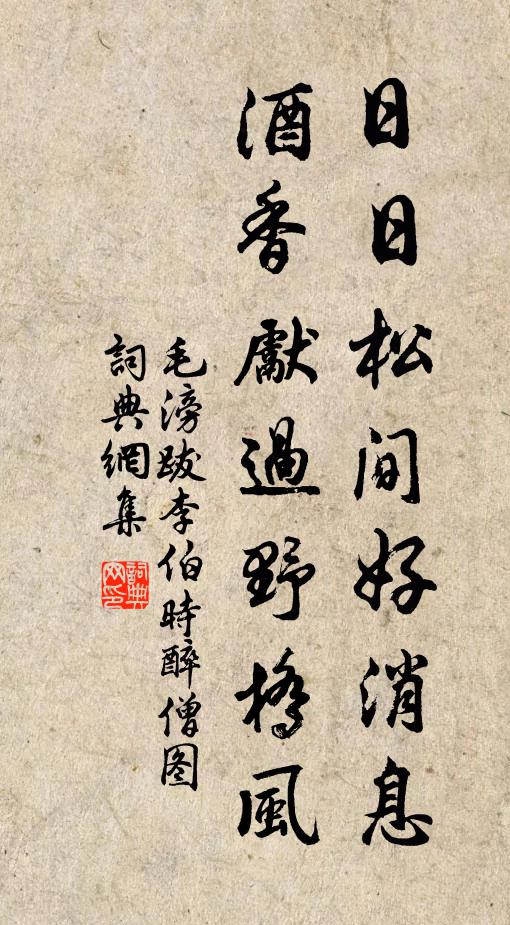 日日松间好消息
酒香獻過野橋風
毛滂跋李伯時醉僧图
詞典網集
詞典网印